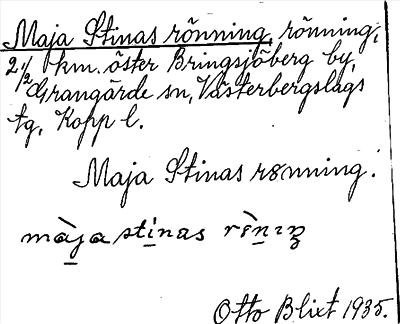 Maja Stinas rönning, rönning,
2 1/2 km. öster Bringsjöberg by,
Grangärde sn, Västerbergslags
tg, Kopp l.
Maja Stinas rønning.
màja stinas rö̀niŋ
Otto Blixt 1935.